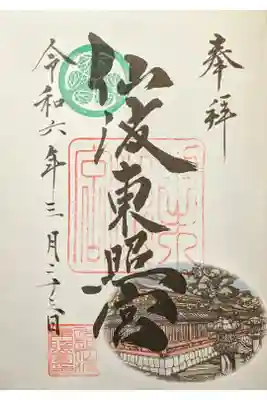 奉拝
仙波東照宮
令和六年三月二十三日